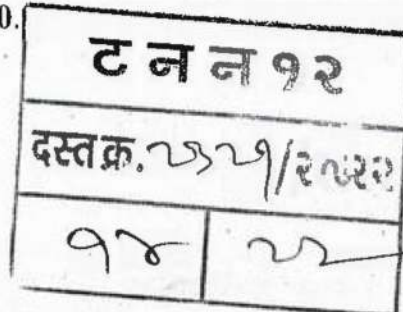 0.
ट न न १२
दस्त क्र. /२०२२
१४ २२